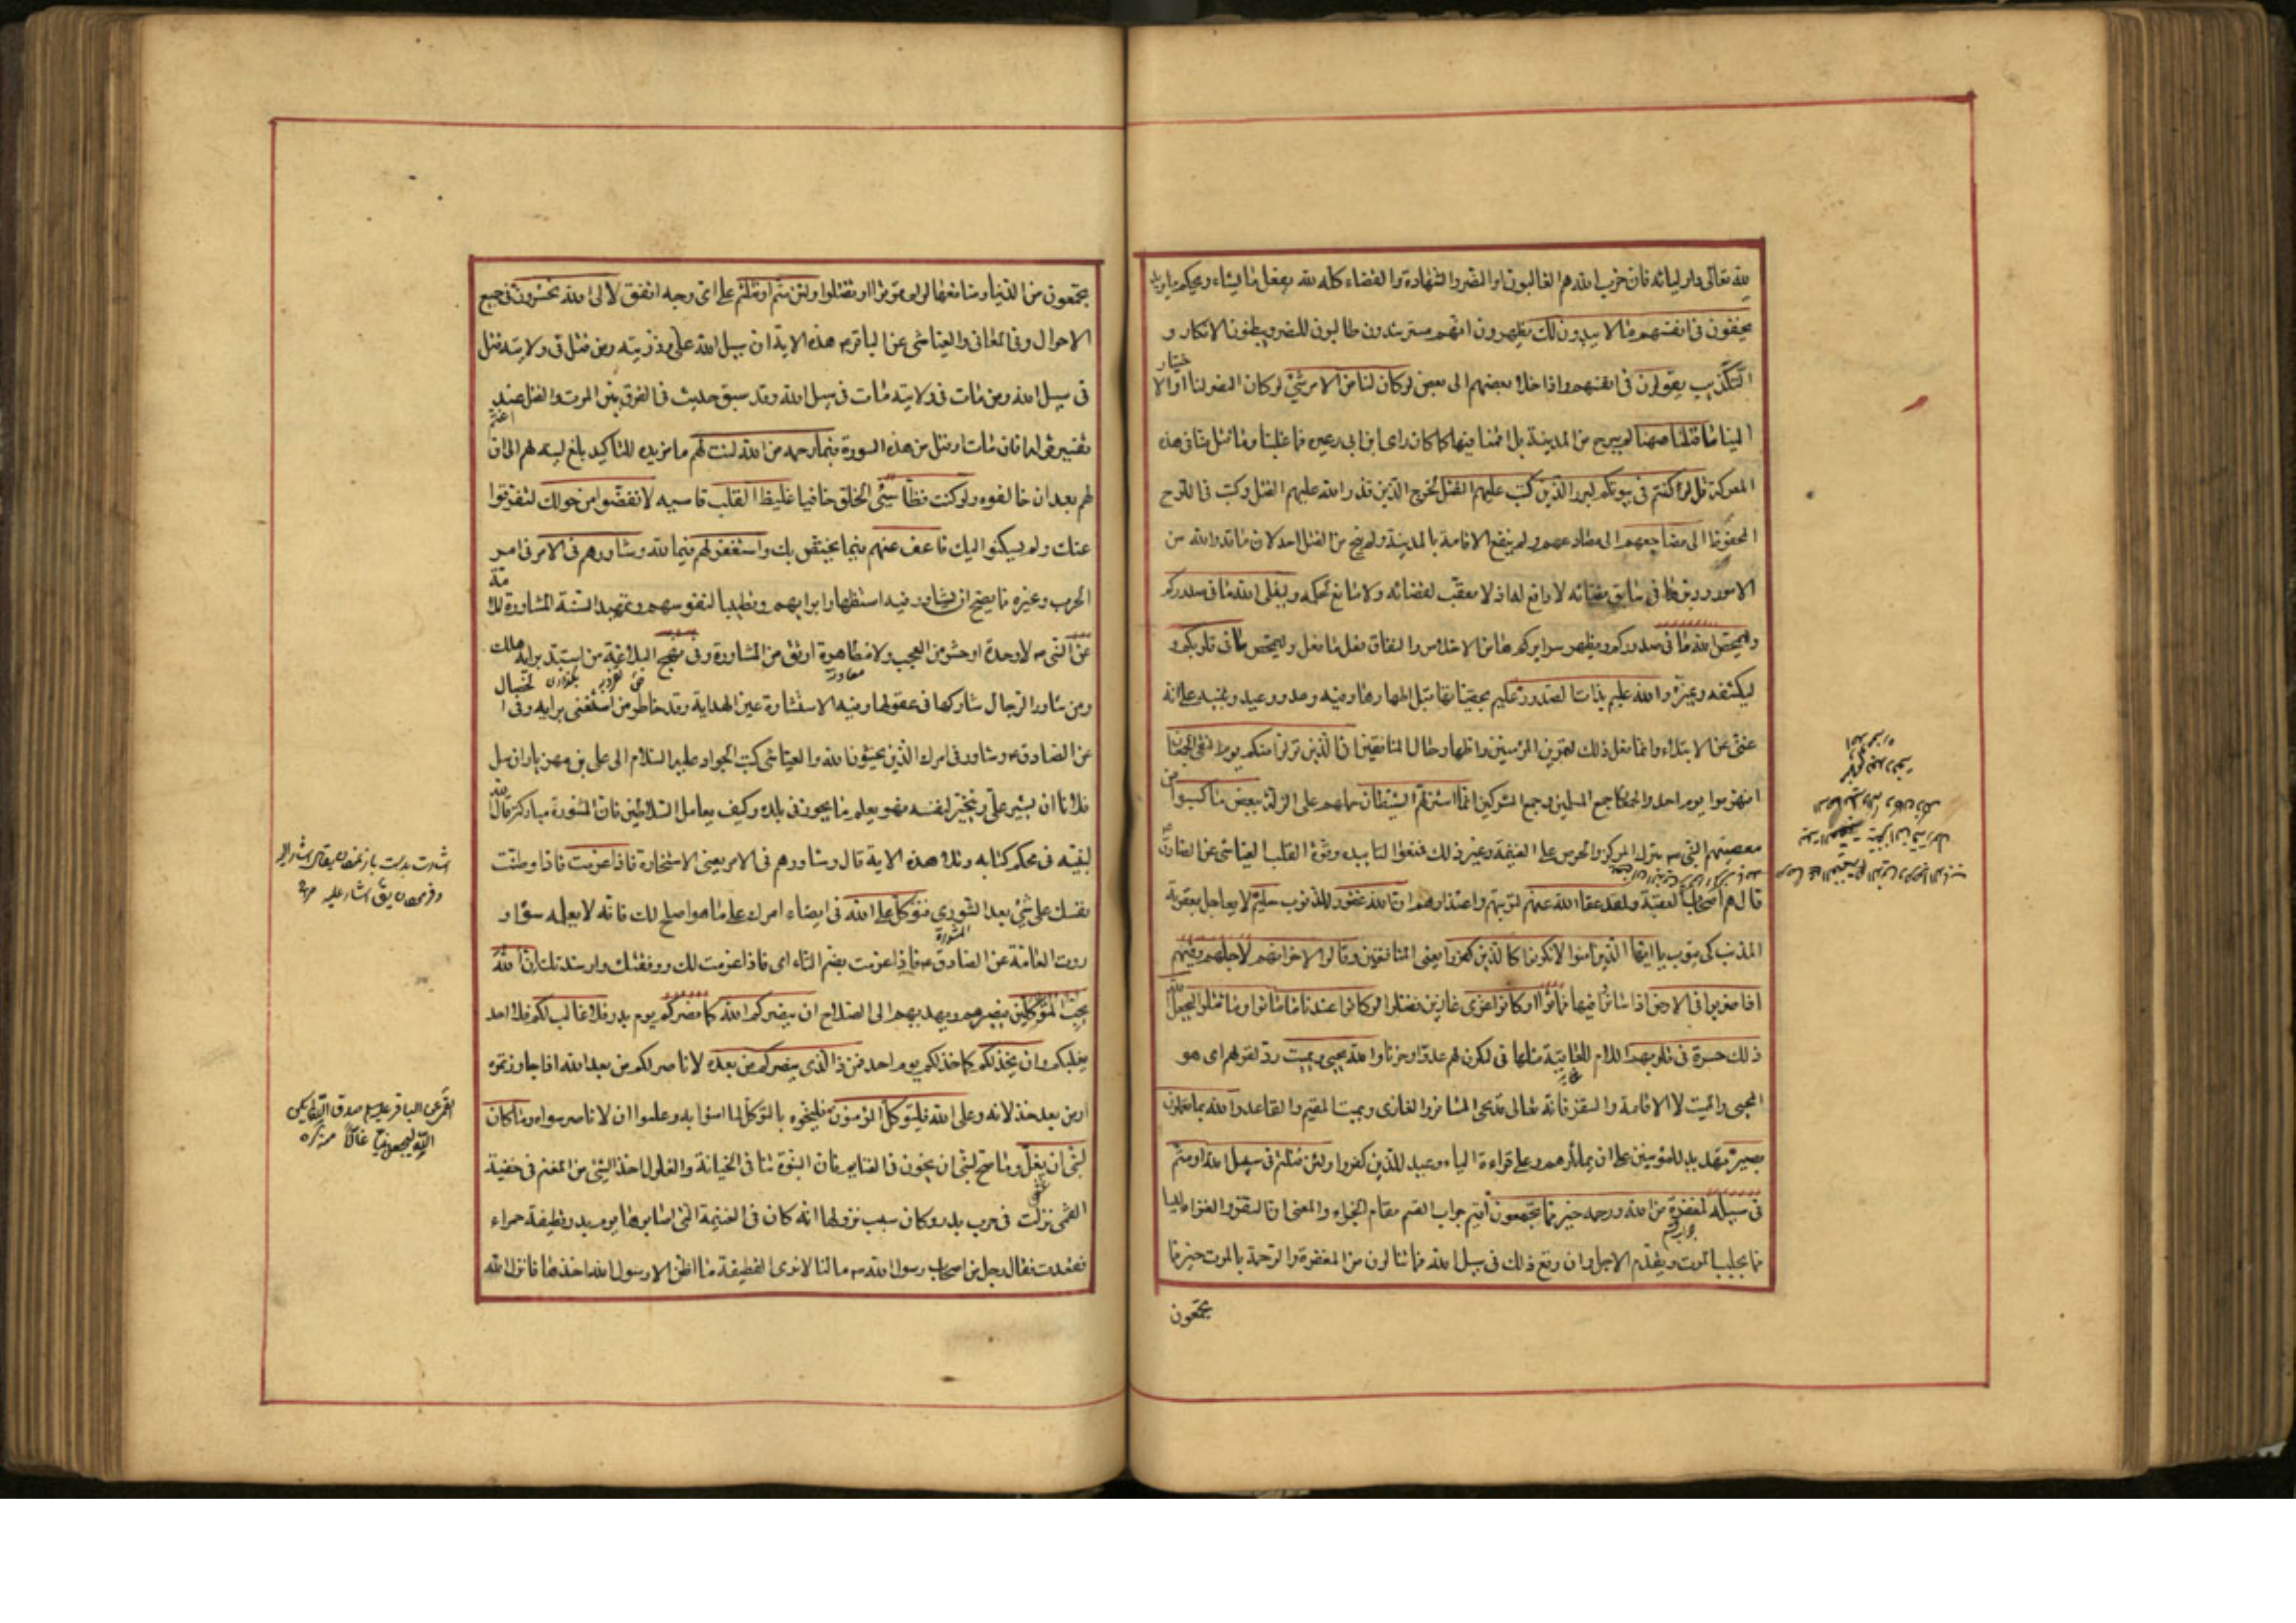 لله تعالى ولاوليائه فان حزب الله هم الغالبون او النصر والشهادة والقضاء كله لله يفعل ما يشاء ويحكم ما يريد
يخفون في انفسهم ما لا يبدون لك يظهرون انهم مسترشدون طالبون للنصر ويبطنون الانكار و
التكذيب يقولون في انفسهم واذا خلا بعضهم الى بعض لو كان لنا من الامر شئ لو كان النصر لنا او الا
ختيار
الينا ما قتلنا ههنا لم يبرح من المدينة بل اقمنا فيها كما كان راى ابن ابي وغيره فما غلبنا وما قتل منا في هذه
المعركة قل لو كنتم في بيوتكم لبرز الذين كتب عليهم القتل لخرج الذين قدر الله عليهم القتل وكتب في اللوح
المحفوظ الى مضاجعهم الى مصارعهم ولم ينفع الاقامة بالمدينة ولم ينج من القتل احد لان ما قدر الله من
الامور ودبرها في سابق قضائه لا دافع لها اذ لا معقب لقضائه ولا مانع لحكمه وليبتلى الله ما في صدوركم
وليمحص الله ما في صدوركم ويظهر سرايركم هنا من الاخلاص والنفاق فعل ما فعل وليمحص ما في قلوبكم و
ليكشفه ويميزه والله عليم بذات الصدور عليم بخفياتها قبل اظهارها وفيه وعد ووعيد وتنبيه على انه
غنى عن الابتلاء وانما فعل ذلك لتمرين المؤمنين واظهار حال المنافقين ان الذين تولوا منكم يوم التقى الجمعان
انهزموا يوم احد والجمعان جمع المسلمين وجمع المشركين انما استزلهم الشيطان حملهم على الزلة ببعض ما كسبوا من
معصيتهم النبي ص بترك المركز والحرص على الغنيمة وغير ذلك فمنعوا التاييد وقوة القلب العياشي عن الصادق
قال هم اصحاب العقبة ولقد عفا الله عنهم لتوبتهم واعتذارهم ان الله غفور للذنوب حليم لا يعاجل بعقوبة
المذنب كي يتوب يا ايها الذين امنوا لا تكونوا كالذين كفروا يعني المنافقين وقالوا لاخوانهم لاجلهم وفيهم
اذا ضربوا في الارض اذا سافروا فيها فماتوا او كانوا غزى غازين فقتلوا لو كانوا عندنا ما ماتوا وما قتلوا ليجعل الله
ذلك حسرة في قلوبهم اللام للعاقبة مثلها في ليكون لهم عدوا وحزنا والله يحيي ويميت رد لقولهم اى هو
المحيى والمميت لا الاقامة والسفر فانه تعالى قد يحيى المسافر والغازى ويميت المقيم والقاعد والله بما تعملون
بصير تهديد للمؤمنين على ان يماثلوهم وعلى قراءة الياء وعيد للذين كفروا ولئن قتلتم في سبيل الله او متم
في سبيله لمغفرة من الله ورحمة خير مما تجمعون اقيم جواب القسم مقام الجزاء والمعنى ان السفر والغزاء ليسا
مما يجلب الموت ويقدم الاجل وان وقع ذلك في سبيل الله فما تنالون من المغفرة والرحمة بالموت خير مما
تجمعون
تجمعون من الدنيا ومنافعها لو لم تموتوا او تقتلوا ولئن متم او قتلتم على اى وجه اتفق لالى الله تحشرون في جميع
الاحوال وفي المعاني والعياشي عن الباقر ع هذه الاية ان سبيل الله على وذريته ومن قتل في ولايته قتل
في سبيل الله ومن مات في ولايته مات في سبيل الله وقد سبق حديث في الفرق بين الموت والقتل عند
تفسير افان مات او قتل من هذه السورة فبما رحمة من الله لنت لهم ما مزيدة للتاكيد بلغ لينه لهم الى ان
اغتم
لهم بعد ان خالفوه ولو كنت فظا سئ الخلق جافيا غليظ القلب قاسيه لانفضوا من حولك لتفرقوا
عنك ولم يسكنوا اليك فاعف عنهم فيما يختص بك واستغفر لهم فيما لله وشاورهم في الامر في امر
الحرب وغيره مما يصح ان يشاور فيه استظهارا برايهم وتطييبا لنفوسهم وتمهيدا لسنة المشاورة للا
مة
عن النبي ص لا وحدة اوحش من العجب ولا مظاهرة اوثق من المشاورة وفي نهج البلاغة من استبد برايه هلك
ومن شاور الرجال شاركها في عقولها وفيه الاستشارة عين الهداية وقد خاطر من استغنى برايه وفي ا
لخصال
عن الصادق ع وشاور في امرك الذين يخشون الله والعياشي كتب الجواد عليه السلام الى على بن مهزيار ان سل
فلانا ان يشير على ويتخير لنفسه فهو يعلم ما يجوز في بلده وكيف يعامل السلاطين فان المشورة مباركة قال الله
لنبيه في محكم كتابه وتلا هذه الاية قال وشاورهم في الامر يعني الاستخارة فاذا عزمت فاذا وطنت
نفسك على شئ بعد الشورى فتوكل على الله في امضاء امرك على ما هو اصلح لك فانه لا يعلمه سواه و
روت العامة عن الصادق ع فاذا عزمت بضم التاء اى فاذا عزمت لك ووفقتك وارشدتك ان الله
يحب المتوكلين فينصرهم ويهديهم الى الصلاح ان ينصركم الله كما نصركم يوم بدر فلا غالب لكم فلا احد
يغلبكم وان يخذلكم كما خذلكم يوم احد فمن ذا الذى ينصركم من بعده لا ناصر لكم من بعد الله اذا جاوزتموه
او من بعد خذلانه وعلى الله فليتوكل المؤمنون فليخصوه بالتوكل لما امنوا به وعلموا ان لا ناصر سواه وما كان
لنبي ان يغل وما صح لنبي ان يخون في الغنايم فان النبوة تنافي الخيانة والغلول اخذ الشئ من المغنم في خفية
القمى نزلت في حرب بدر وكان سبب نزولها انه كان في الغنيمة التي اصابوها يوم بدر قطيفة حمراء
ففقدت فقال رجل من اصحاب رسول الله ص ما لنا لا نرى القطيفة ما اظن الا رسول الله اخذها فانزل الله